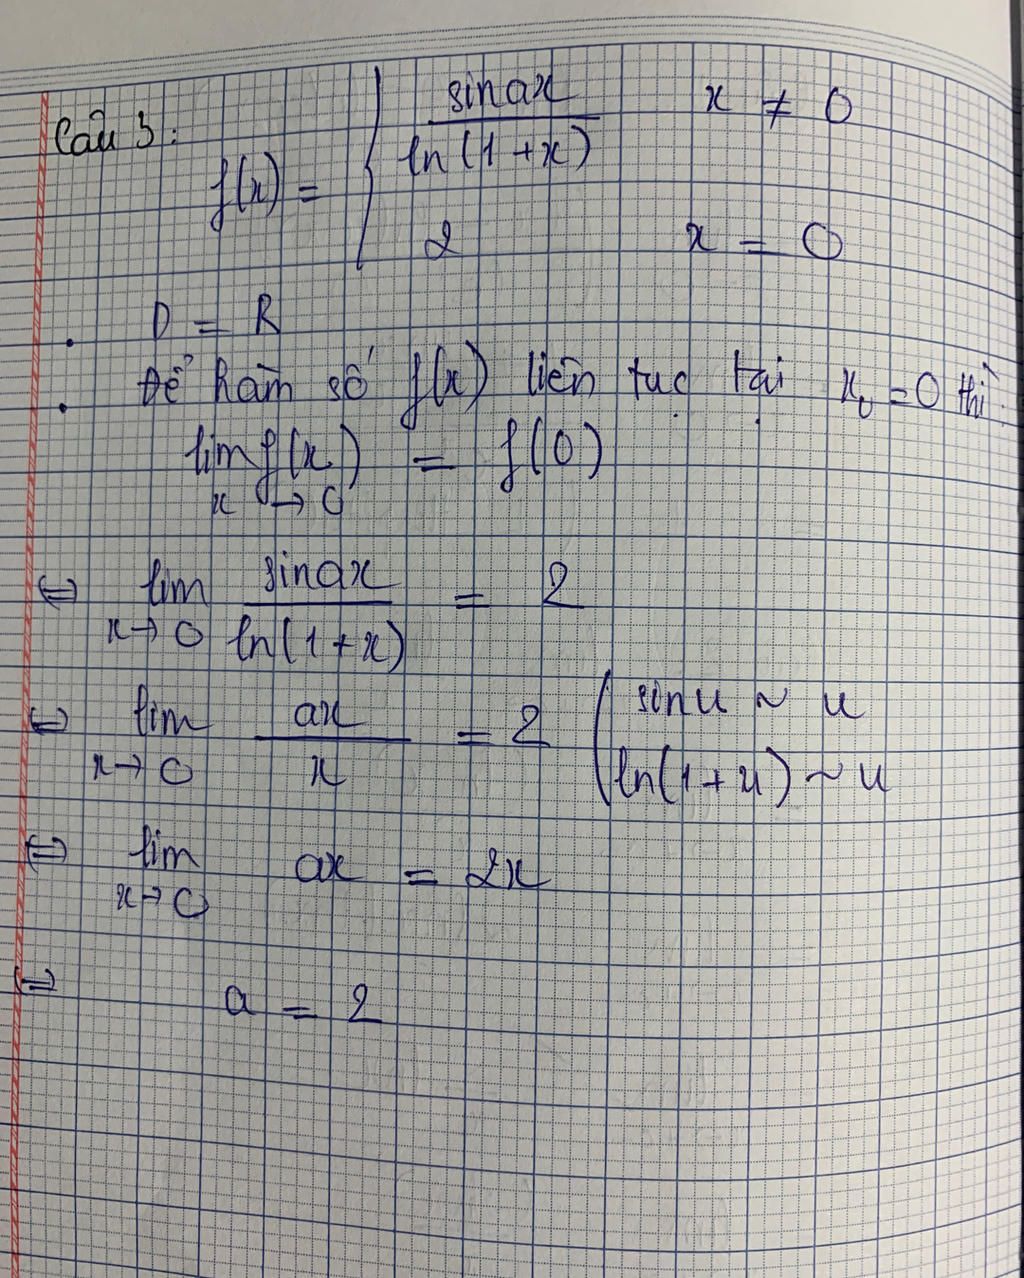 Câu 3:
f(x) = { sinax / ln(1+x) x ≠ 0
2 x = 0
• D = R
• Để hàm số f(x) liên tục tại x₀ = 0 thì:
lim f(x) = f(0)
x → 0
⇔ lim sinax / ln(1+x) = 2
x→0
⇔ lim ax / x = 2 ( sinu ~ u
x→0 ln(1+u) ~ u
⇔ lim ax = 2x
x→0
⇔ a = 2